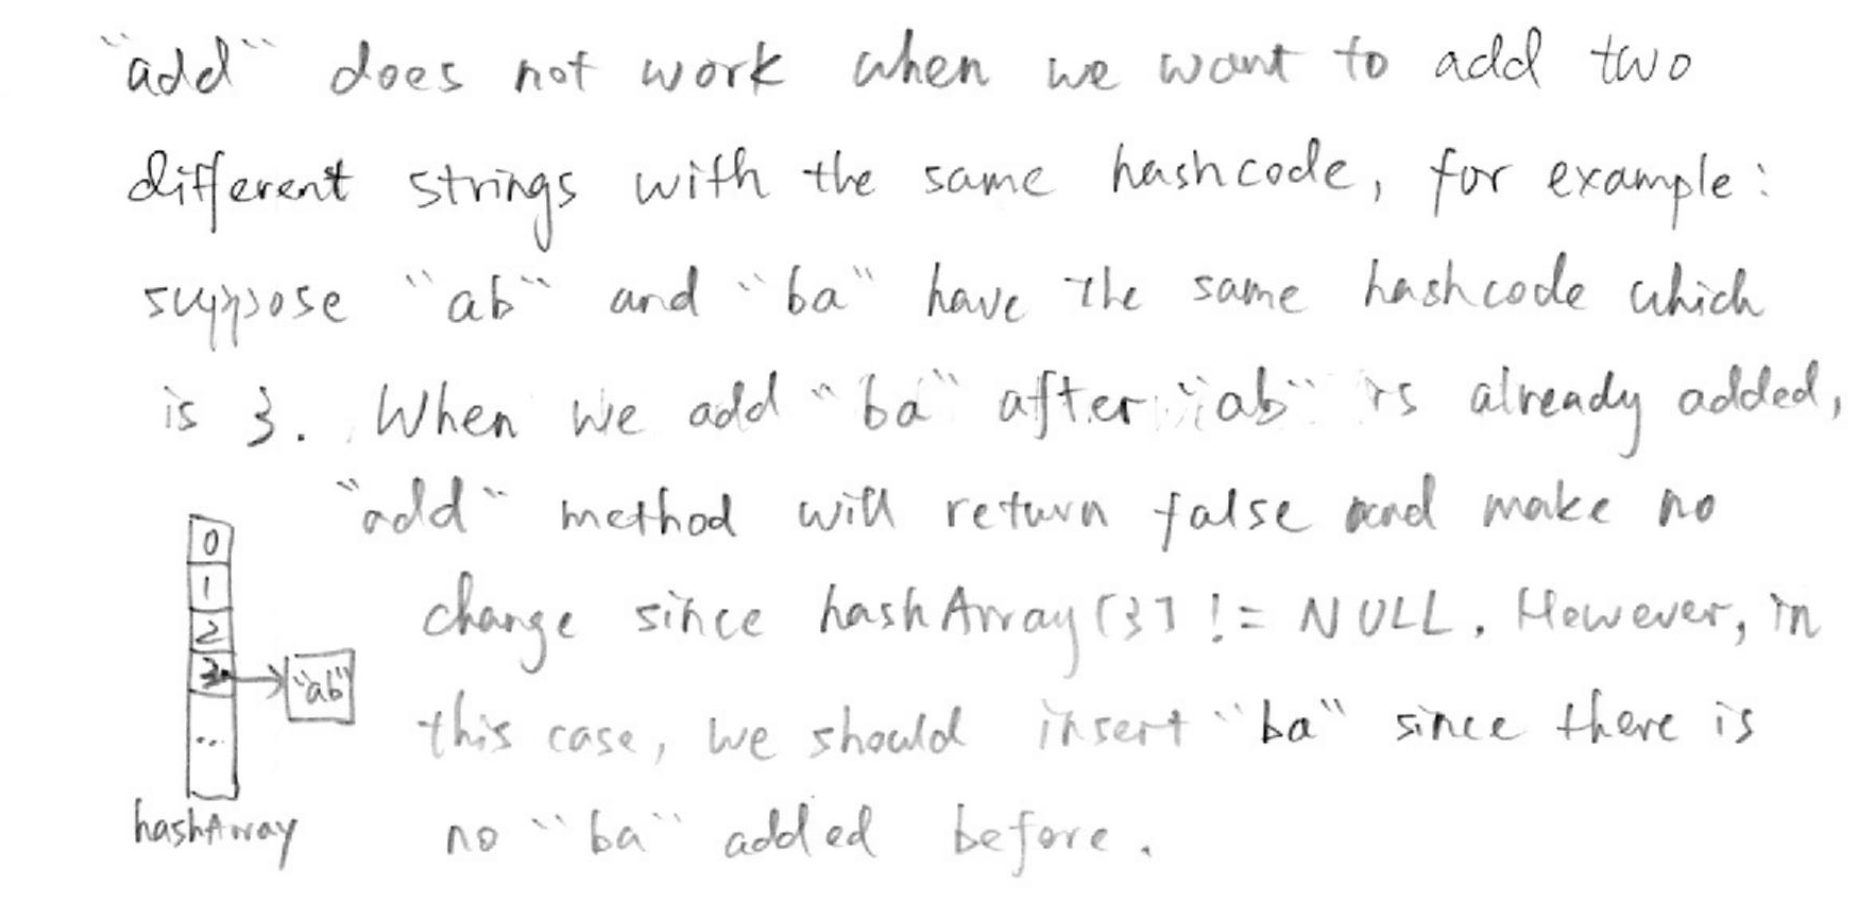 "add" does not work when we want to add two
different strings with the same hashcode, for example:
suppose "ab" and "ba" have the same hashcode which
is 3. When we add "ba" after "ab" is already added,
"add" method will return false and make no
change since hashArray[3] != NULL. However, in
this case, we should insert "ba" since there is
no "ba" added before.
0
1
2
3
"ab"
...
hashArray